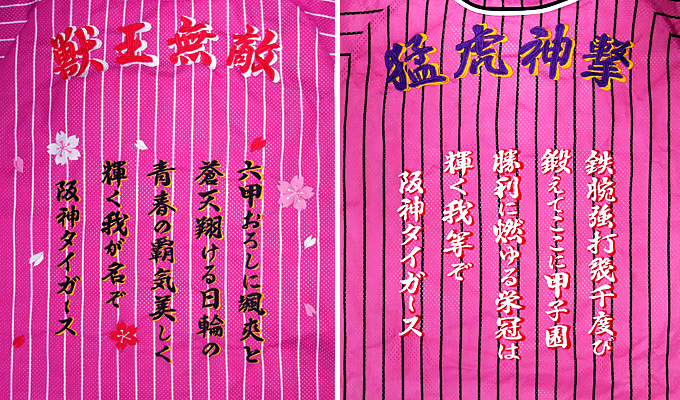 獣王無敵
六甲おろしに颯爽と
蒼天翔ける日輪の
青春の覇気美しく
輝く我が名ぞ
阪神タイガース
猛虎神撃
鉄腕強打幾千度び
鍛えてここに甲子園
勝利に燃ゆる栄冠は
輝く我等ぞ
阪神タイガース